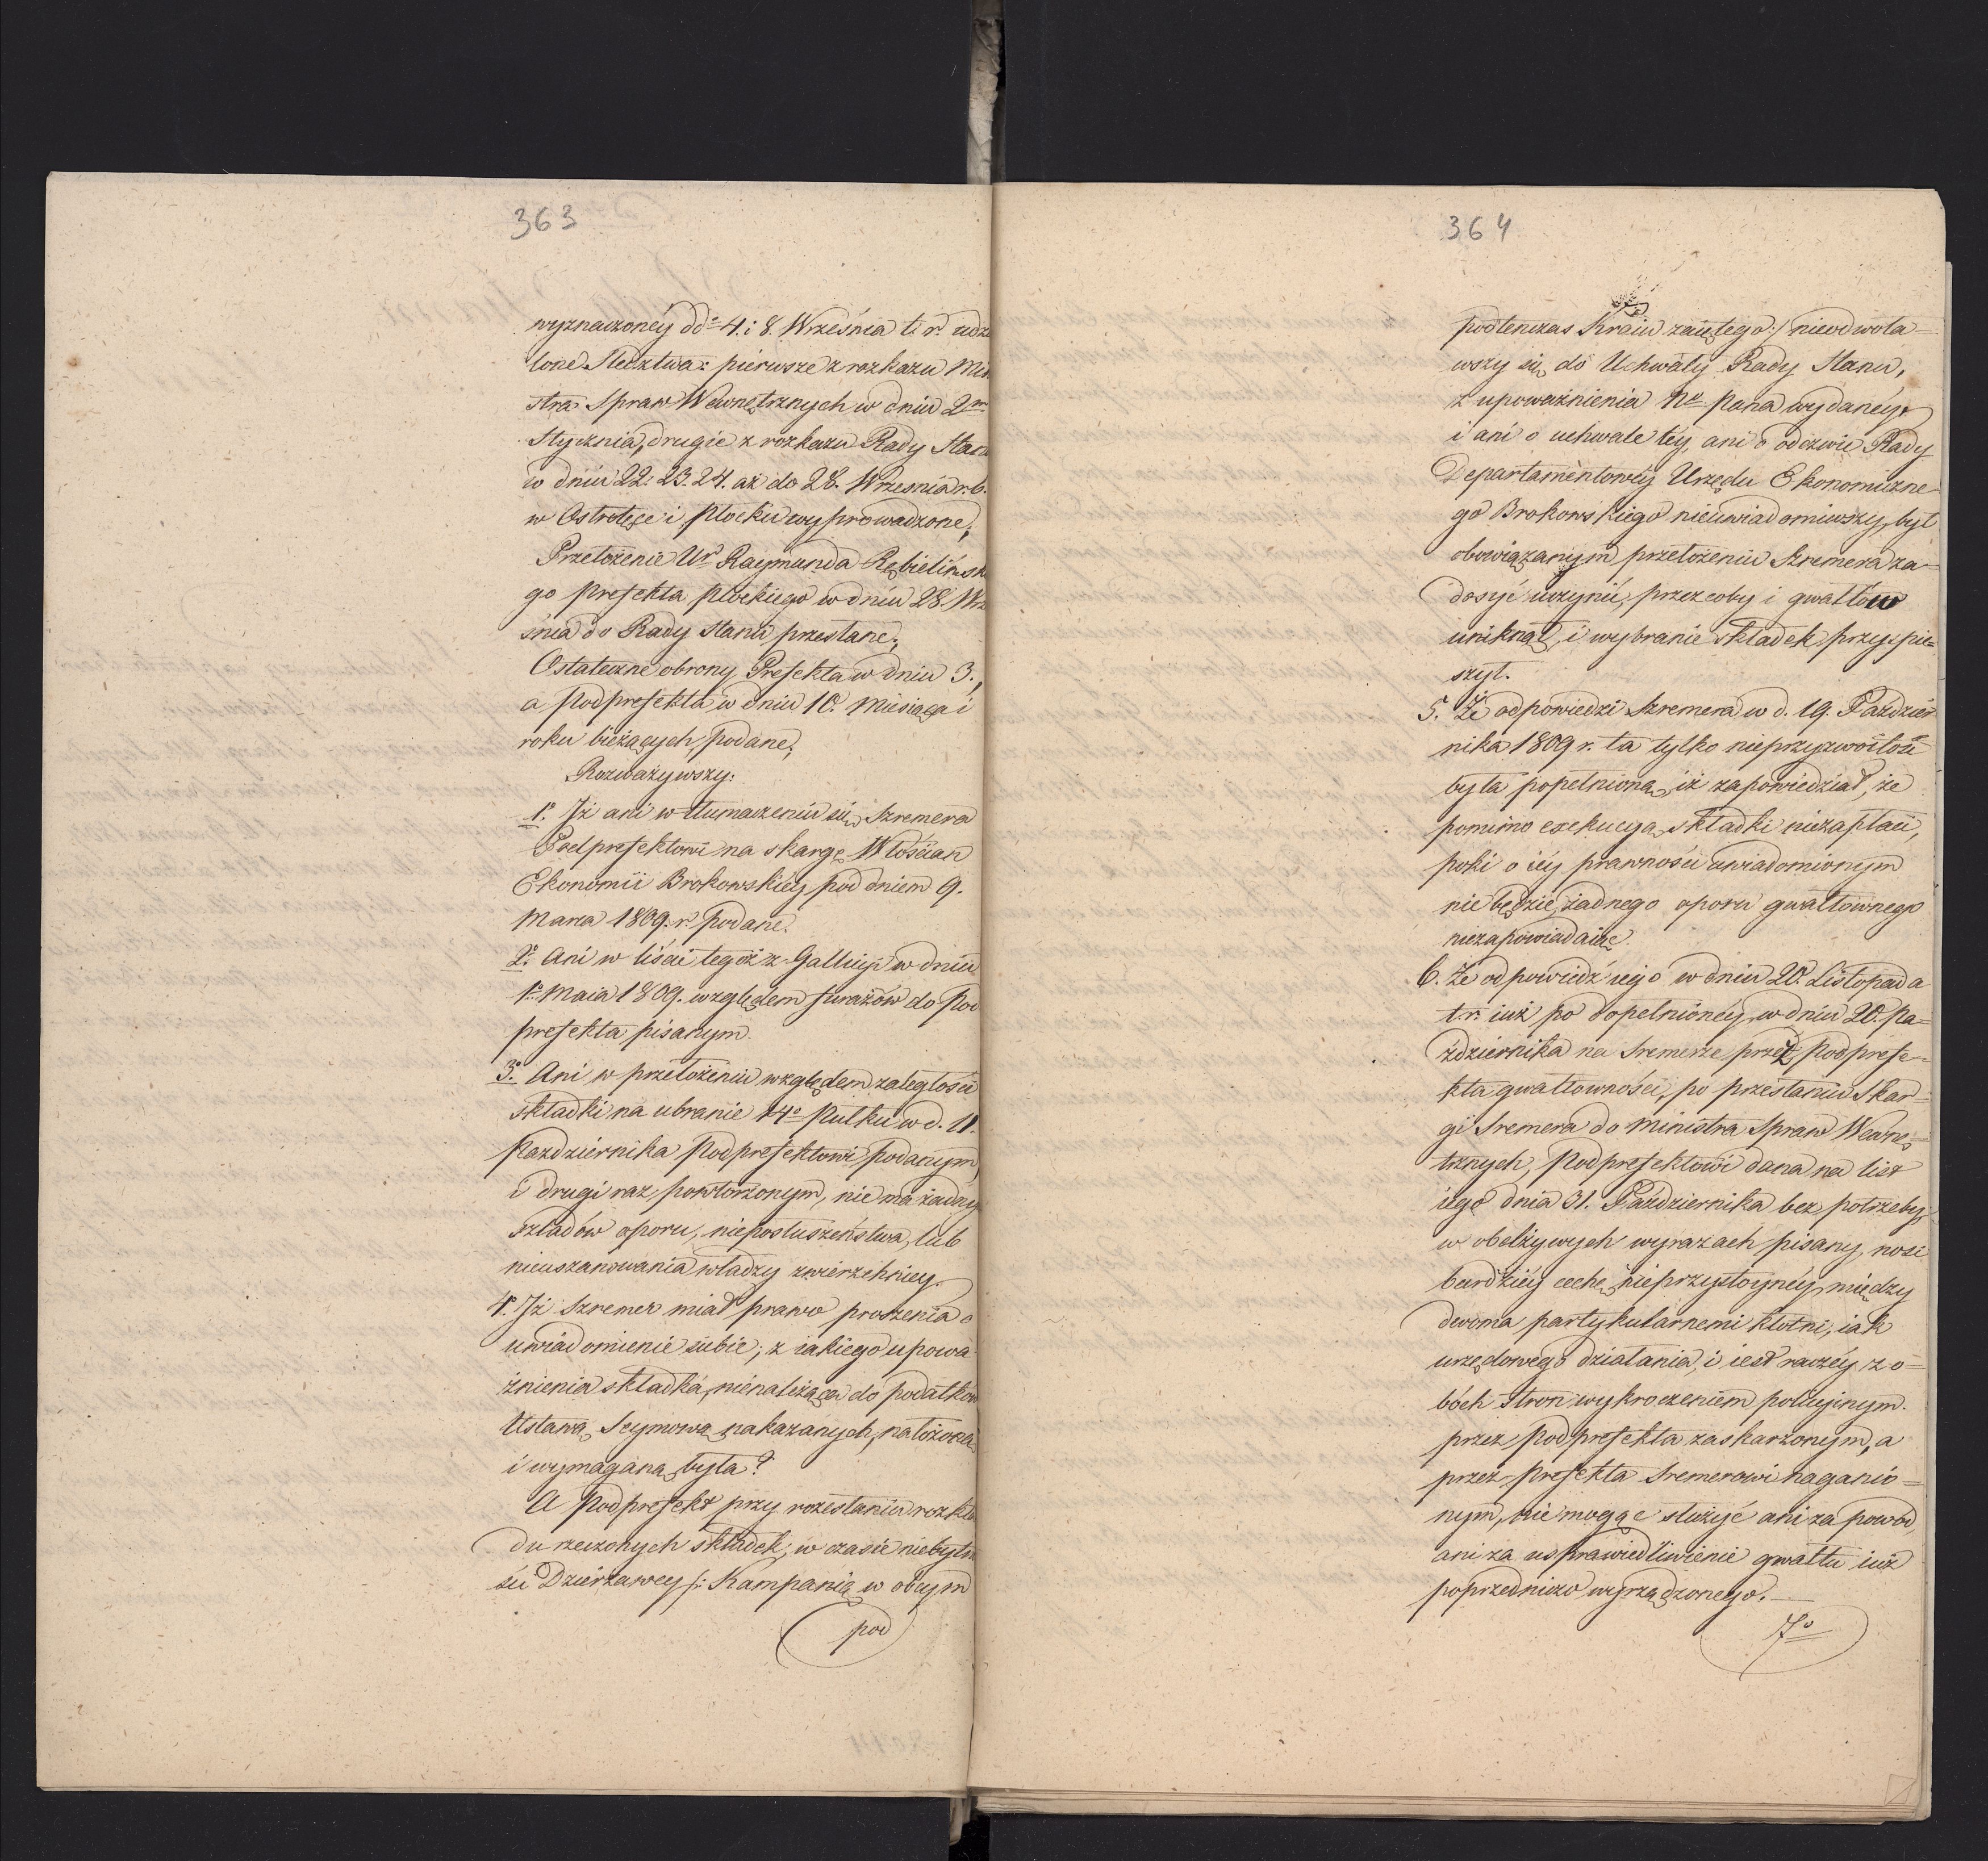 363
wyznaczoney dd= 4. i 8. Września t. r. udzie
lone. Śledztwa: pierwsze z rozkazu Mini
stra Spraw Wewnętrznych w dniu 2m
Stycznia, drugie z rozkazu Rady Stanu
w dniu 22. 23. 24. aż do 28. Września r. b.
w Ostrołęce i Płocku wyprowadzone;
Przełożenie Ur Raymunda Rębielińsk
go Prefekta płockiego w dniu 28. Wrz
śnia do Rady Stanu przesłane;
Ostateczne obrony Prefekta w dniu 3.,
a Podprefekta w dniu 10. Miesiąca i
roku bieżących, podane;
Rozważywszy:
1o Iż ani w tłumaczeniu się Szremera
Podprefektowi na skargę Włościan
Ekonomii Brokowskiéy pod dniem 9.
Marca 1809. r. podane.
2o Ani w liście tegoż z Gallicyi w dniu
1o Maia 1809. względem furażów do Pod
prefekta pisanym.
3o Ani w przełożeniu względem zaległości
składki na ubranie 14o Pułku w d. 11.
Października Podprefektowi podanym,
i drugi raz powtórzonym, nie ma żadny
szladów oporu, nieposłuszeństwa, lub
nieuszanowania władzy zwierzchniey.
4o Iż Szremer miał prawo proszenia o
uwiadomienie siebie; z iakiego upowa
żnienia składka, nienależąca do podatkow
Ustawą Seymową nakazanych, nałożona
i wymaganą była?
A Podprefekt przy rozesłaniu rozkła
du rzeczonych składek, w czasie niebytno
ści Dzierżawcy /: Kampanią w obcym
pod
364
podtenczas Kraiu zaiętego:/ nieodwoła=
wszy się do Uchwały Rady Stanu,
z upoważnienia No Pana wydanéy,
i ani o uchwale téy, ani o odezwie Rady
Departamentowéy Urzędu Ekonomiczne
go Brokowskiego nieuwiadomiwszy, był
obowiązanym przełożeniu Szremera za=
dosyć uczynić, przez coby i gwałtow
uniknął, i wybranie składek przyspie=
szył.
5. Że odpowiedzi Szremera w d. 19. Paździer
nika 1809 r. ta tylko nieprzyzwoitość
była popełniona, iż zapowiedział, że
pomimo exekucyą, składki niezapłaci,
poki o iéy prawności uwiadomionym
nie będzie, żadnego oporu gwałtownego
niezapowiadaiąc.
6. Że odpowiedź iego w dniu 20. Listopada
t. r. iuż po dopełnionéy w dniu 20. Pa=
ździernika na Sremerze przez Podprefe=
kta gwałtowności, po przesłaniu Skar=
gi Sremera do Ministra Spraw Wewnę=
trznych, Podprefektowi dana na list
iego dnia 31. Października bez potrzeby
w obelżywych wyrazach pisany, nosi
bardziéy cechę nieprzystoynéy między
dwoma partykularnemi kłótni, iak
urzędowego działania, i iest raczéy z o=
bóch Stron wykroczeniem policyinym.
przez Podprefekta zaskarżonym, a
przez Prefekta Sremerowi naganio=
nym, nie mogąc służyć ani za powod
ani za usprawiedliwienie gwałtu iuż
poprzedniczo wyrządzonego.
7o